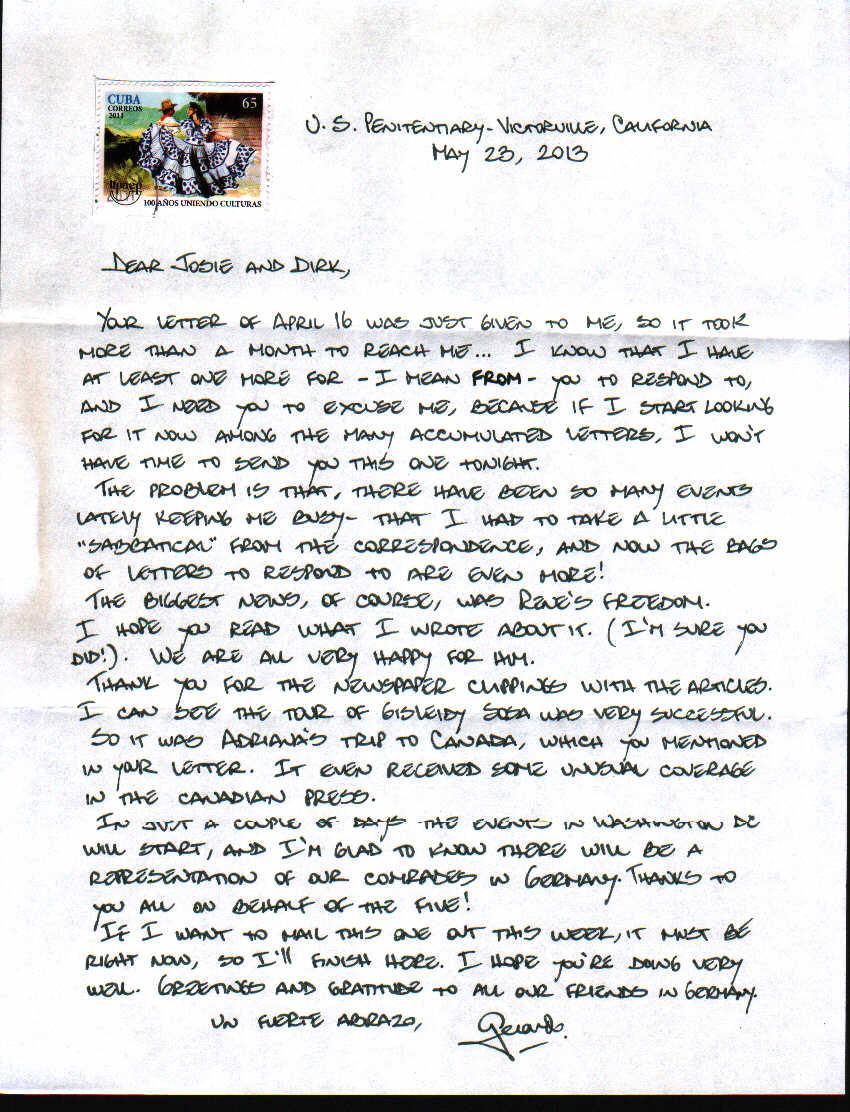 CUBA
CORREOS
2011
65
upaep
100 AÑOS UNIENDO CULTURAS
U.S. PENITENTIARY - VICTORVILLE, CALIFORNIA
MAY 23, 2013
DEAR JOSIE AND DIRK,
YOUR LETTER OF APRIL 16 WAS JUST GIVEN TO ME, SO IT TOOK
MORE THAN A MONTH TO REACH ME... I KNOW THAT I HAVE
AT LEAST ONE MORE FOR - I MEAN FROM - YOU TO RESPOND TO,
AND I NEED YOU TO EXCUSE ME, BECAUSE IF I START LOOKING
FOR IT NOW AMONG THE MANY ACCUMULATED LETTERS, I WON'T
HAVE TIME TO SEND YOU THIS ONE TONIGHT.
THE PROBLEM IS THAT, THERE HAVE BEEN SO MANY EVENTS
LATELY KEEPING ME BUSY - THAT I HAD TO TAKE A LITTLE
"SABBATICAL" FROM THE CORRESPONDENCE, AND NOW THE BAGS
OF LETTERS TO RESPOND TO ARE EVEN MORE!
THE BIGGEST NEWS, OF COURSE, WAS RENE'S FREEDOM.
I HOPE YOU READ WHAT I WROTE ABOUT IT. (I'M SURE YOU
DID!). WE ARE ALL VERY HAPPY FOR HIM.
THANK YOU FOR THE NEWSPAPER CLIPPINGS WITH THE ARTICLES.
I CAN SEE THE TOUR OF GISLEIDY SOSA WAS VERY SUCCESSFUL.
SO IT WAS ADRIANA'S TRIP TO CANADA, WHICH YOU MENTIONED
IN YOUR LETTER. IT EVEN RECEIVED SOME UNUSUAL COVERAGE
IN THE CANADIAN PRESS.
IN JUST A COUPLE OF DAYS THE EVENTS IN WASHINGTON DC
WILL START, AND I'M GLAD TO KNOW THERE WILL BE A
REPRESENTATION OF OUR COMRADES IN GERMANY. THANKS TO
YOU ALL ON BEHALF OF THE FIVE!
IF I WANT TO MAIL THIS ONE OUT THIS WEEK, IT MUST BE
RIGHT NOW, SO I'll FINISH HERE. I HOPE YOU'RE DOING VERY
WELL. GREETINGS AND GRATITUDE TO ALL OUR FRIENDS IN GERMANY.
UN FUERTE ABRAZO, Gerardo.